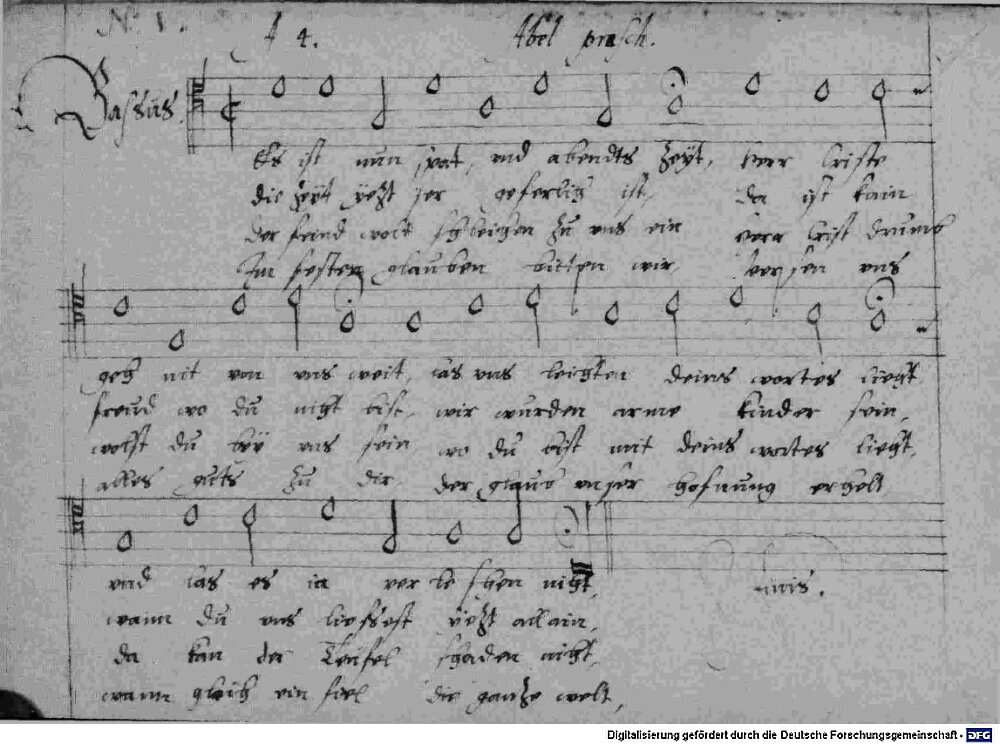 N. 1.
A 4. Abel prasch.
Bassus.
Es ist nun spat, vnd abendts Zeÿt, herr Criste
die Zeÿt ÿezt ser geferlich ist, da ist kain
der feind wolt schleichen zu vns ein herr Crist drumb
Im festen glauben bitten wir, vns
geh nit von vns weit, las vns leichten deins wortes liecht
freud wo du nicht bist, wir wurden arme kinder sein,
wolst du beÿ vns sein, wo du bist mit deins wortes liecht,
alles guts zu dir, der glaub vnser hofnung erhelt
vnd las es ia verleschen nicht,
wann du vns liessest ÿezt allain,
da kan der Teufel schaden nicht,
wann gleich ein fiel die ganze welt,
finis.
Digitalisierung gefördert durch die Deutsche Forschungsgemeinschaft - DFG